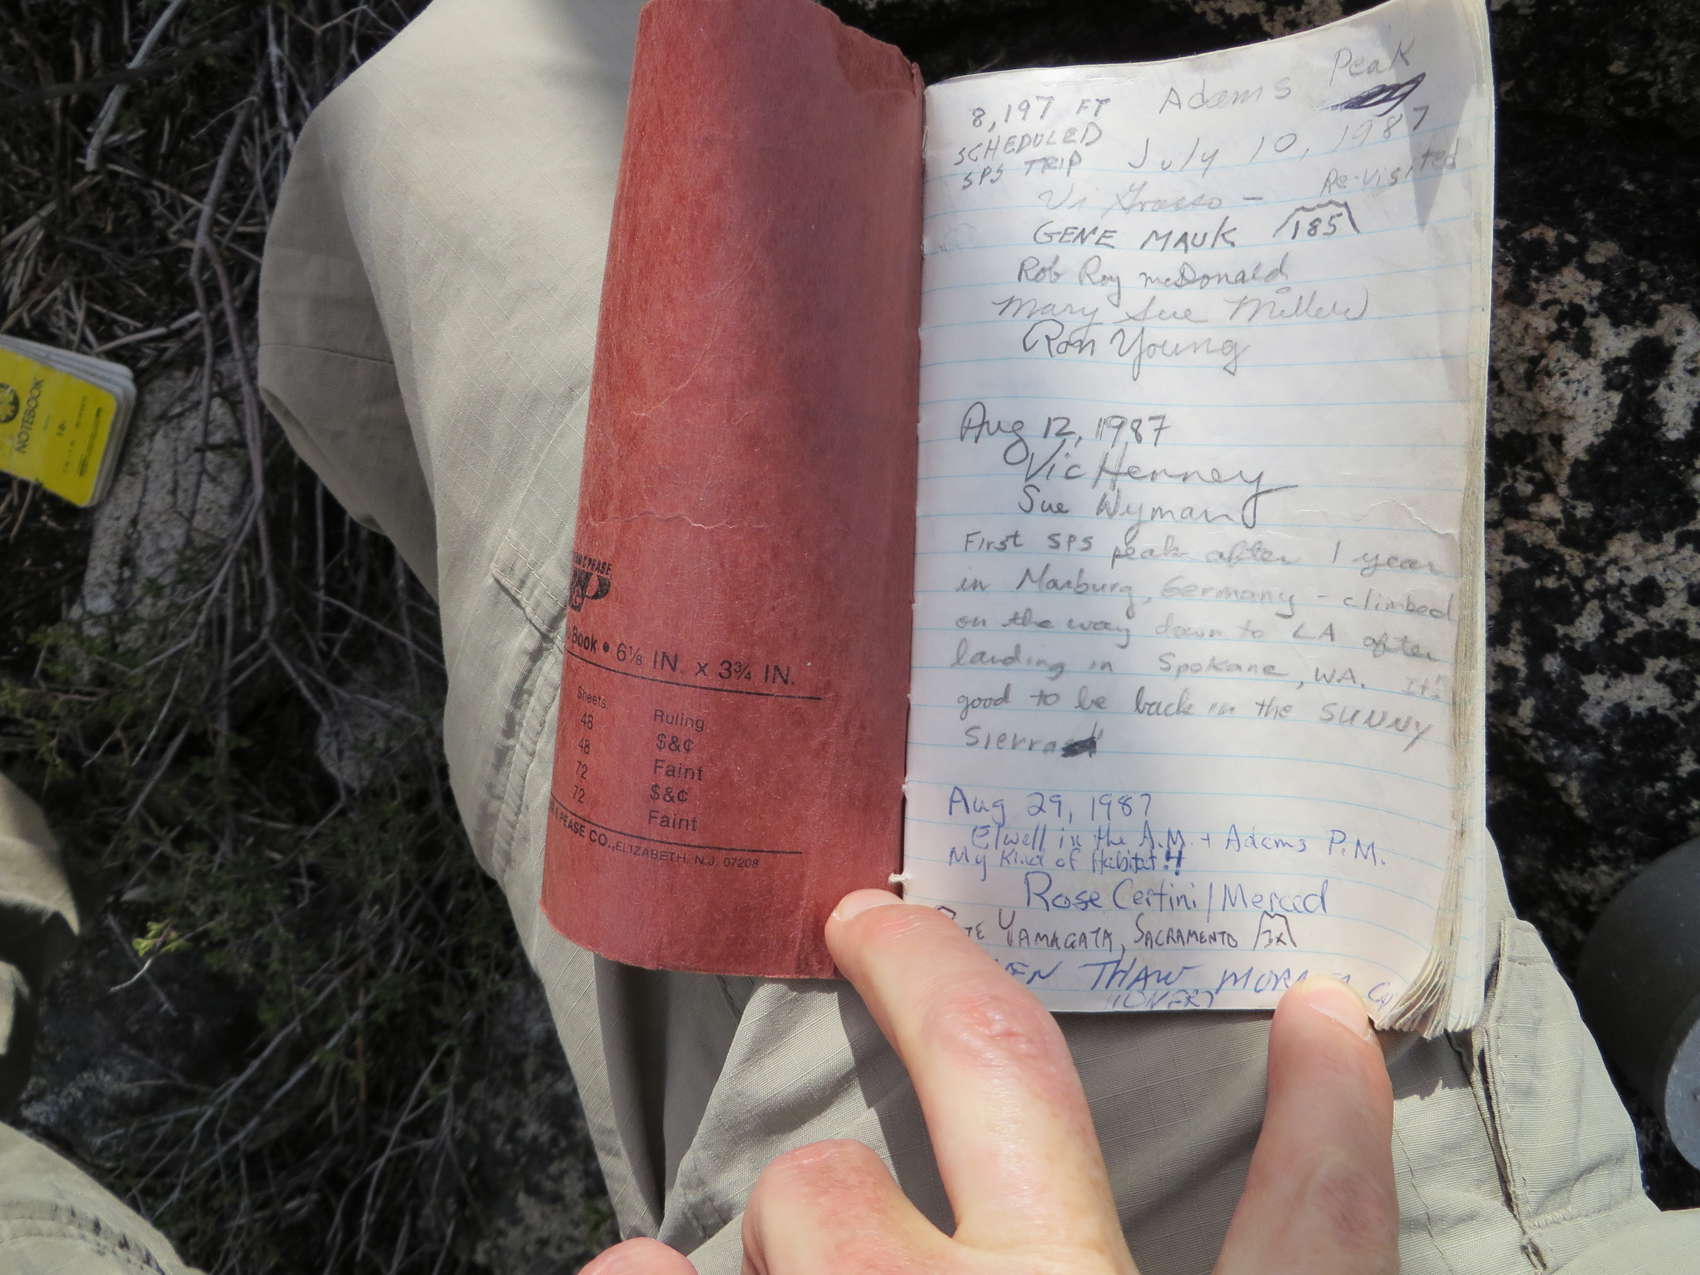 NOTEBOOK
Book • 6⅛ IN. x 3¾ IN.
Sheets Ruling
48 $&¢
48 Faint
72 $&¢
72 Faint
PEASE CO., ELIZABETH, N.J. 07208
Adams Peak
8,197 FT
SCHEDULED
SPS TRIP
July 10, 1987
Vi Grasso - Re-visited
GENE MAUK 185
Rob Roy McDonald
Mary Sue Miller
Ron Young
Aug 12, 1987
Vic Henney
Sue Wyman
First SPS peak after 1 year
in Marburg, Germany - climbed
on the way down to LA after
landing in Spokane, WA. It's
good to be back in the SUNNY
Sierra
Aug 29, 1987
Elwell in the A.M. + Adams P.M.
My Kind of Habitat!!
Rose Certini / Merced
YAMAGATA, SACRAMENTO
THAW